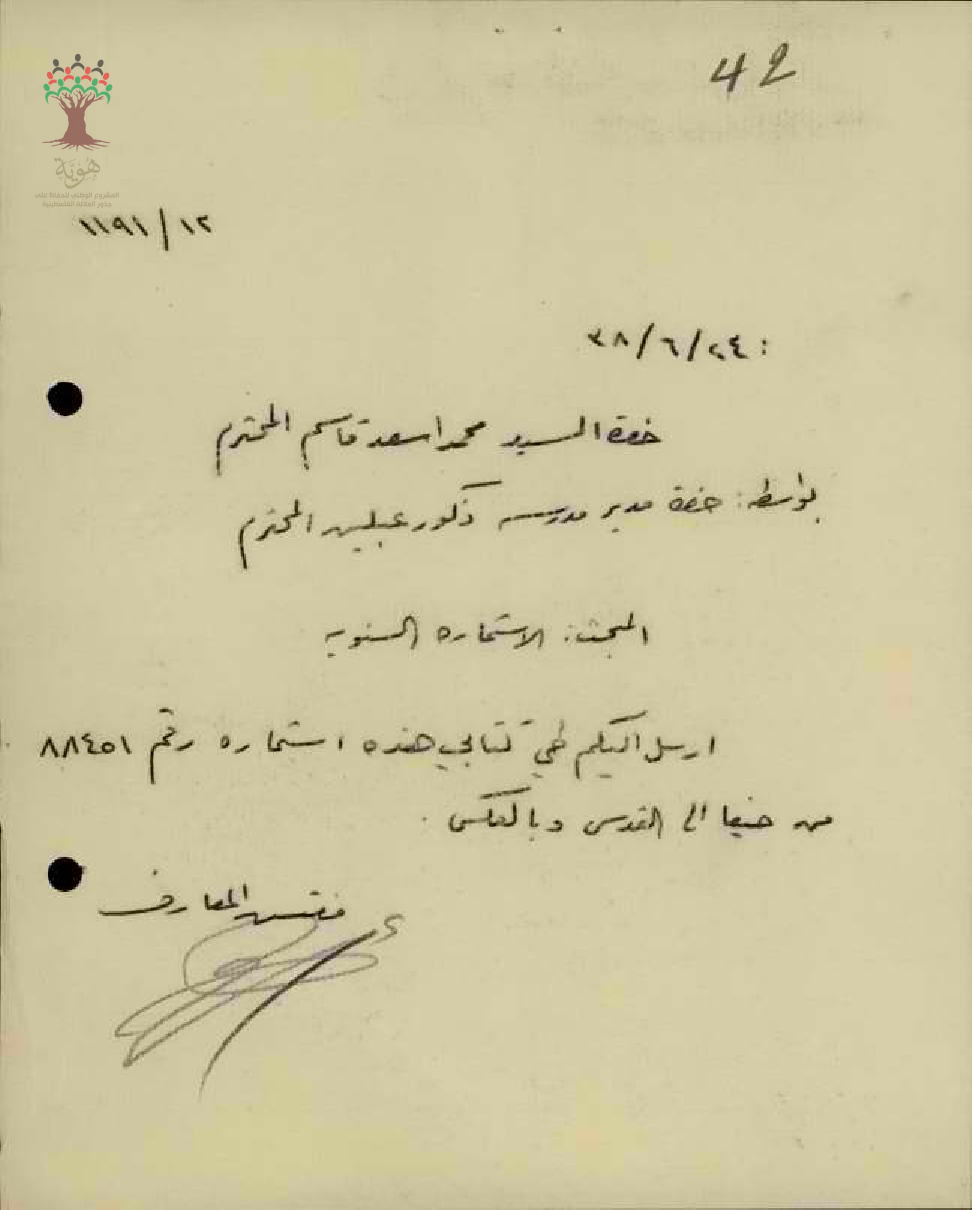 42
هوية
المشروع الوطني للحفاظ على
جذور العائلة الفلسطينية
١١٩١/١٢
٣٨/٦/٢٤ :
حضرة السيد محمد اسعد قاسم المحترم
بواسطة: حضرة مدير مدرسه ذكور عبلين المحترم
المبحث: الاستماره السنويه
ارسل اليكم طي كتابي هذه استماره رقم ٨٨٤٥١
من حيفا الى القدس وبالعكس .
مفتش المعارف